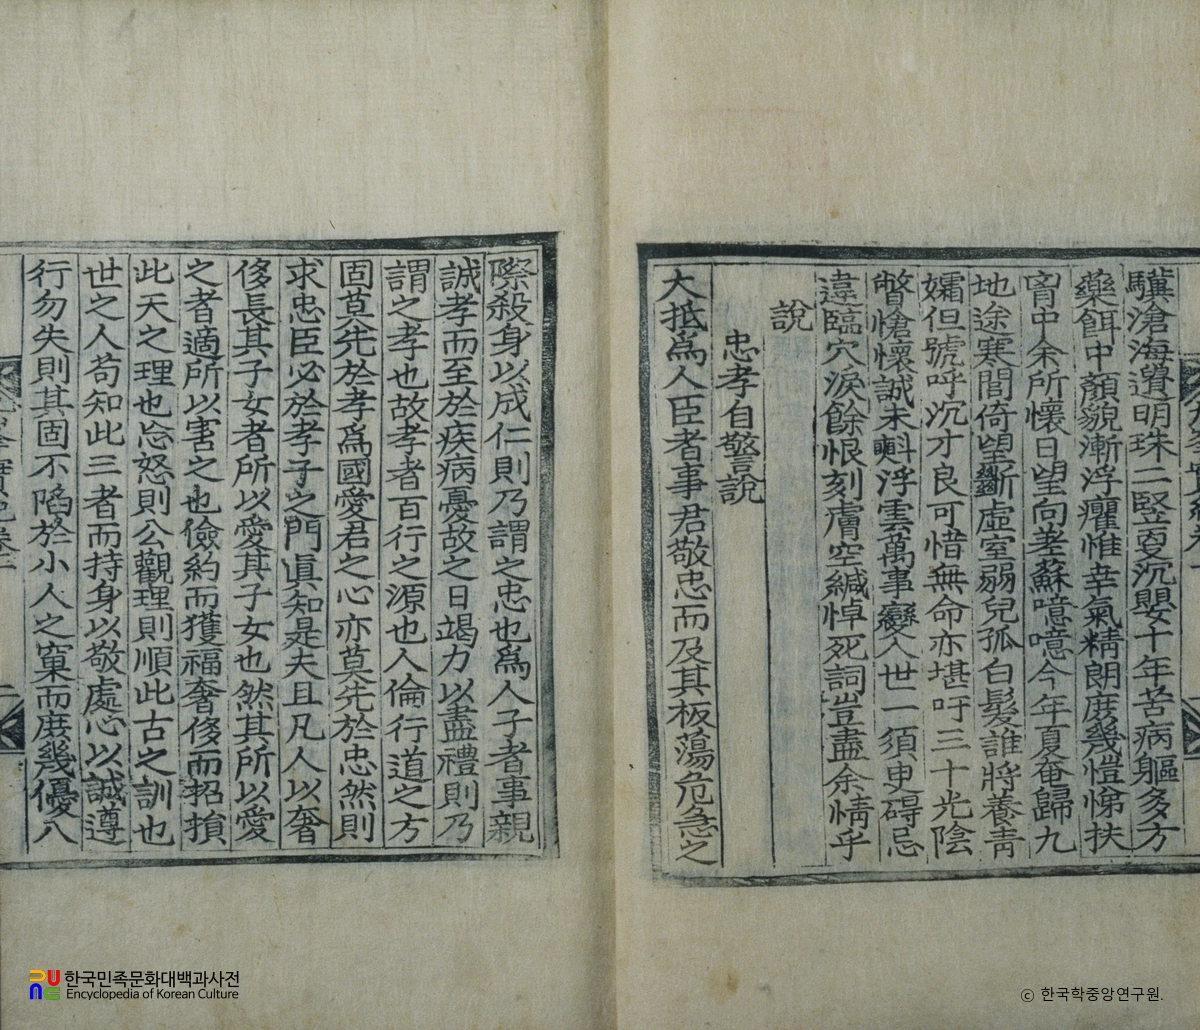 驥滄海邊明珠二竪更沉嬰十年苦病軀多方
藥餌中顏貌漸浮癯惟幸氣精朗庶幾愷悌扶
宵中余所懷日望向差蘇噫噫今年夏奄歸九
地途寒閨倚望斷虛室弱兒孤白髮誰將養靑
孀但號呼沉才良可惜無命亦堪吁三十光陰
瞥愴懷誠未㪺浮雲萬事變人世一須臾碍忌
違臨穴淚餘恨刻膚空緘悼死詞豈盡余情乎
說
忠孝自警說
大抵爲人臣者事君敬忠而及其板蕩危急之
際殺身以成仁則乃謂之忠也爲人子者事親
誠孝而至於疾病憂故之日竭力以盡禮則乃
謂之孝也故孝者百行之源也人倫行道之方
固莫先於孝爲國愛君之心亦莫先於忠然則
求忠臣必於孝子之門眞知是夫且凡人以奢
侈長其子女者所以愛其子女也然其所以愛
之者適所以害之也儉約而獲福奢侈而招損
此天之理也忿怒則公觀理則順此古之訓也
世之人苟知此三者而持身以敬處心以誠遵
行勿失則其固不陷於小人之窠而庶幾優入
한국민족문화대백과사전
Encyclopedia of Korean Culture
ⓒ 한국학중앙연구원.